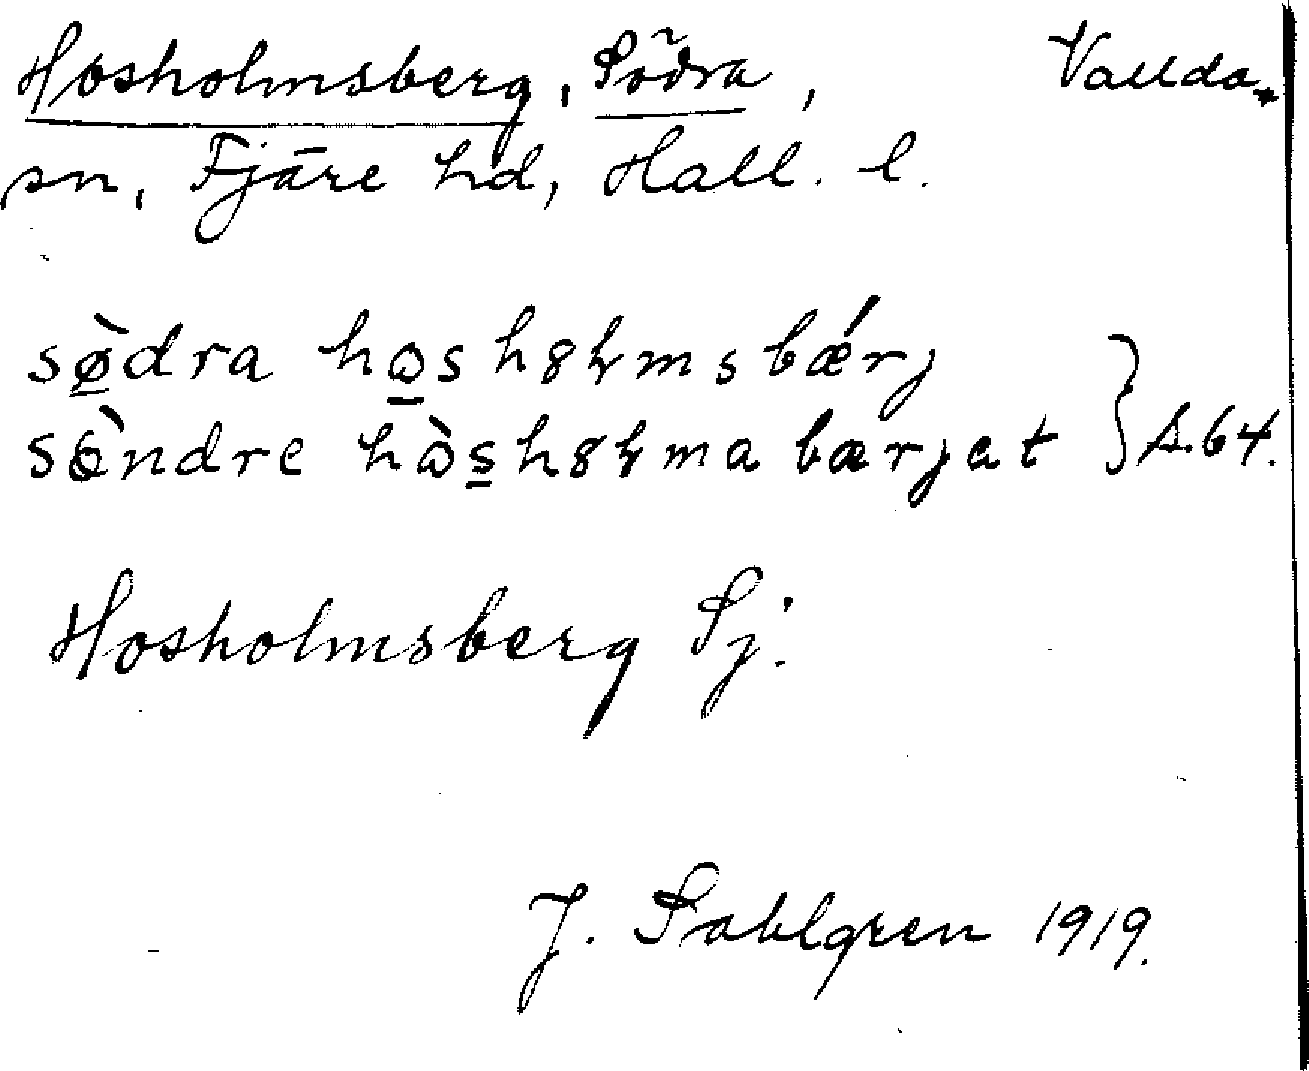 Hosholmsberg, Södra, Vallda
sn, Fjäre hd, Hall. l.
sø̀dra hɷshꝏɬmsbǽrj
sɵ̀ndre hɷ̀shꝏɬmabærjat } A.64.
Hosholmsberg Sj.
J. Sahlgren 1919.